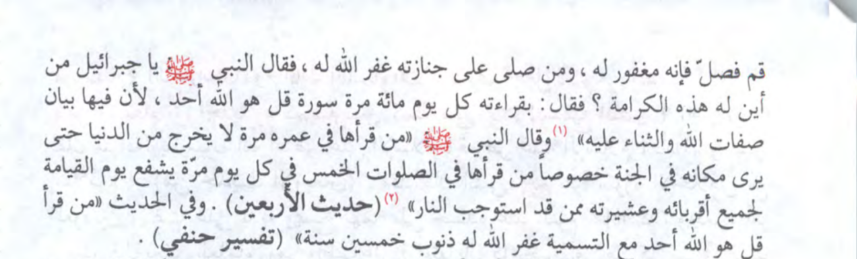 قم فصلّ فإنه مغفور له ، ومن صلى على جنازته غفر الله له ، فقال النبي ﷺ يا جبرائيل من
أين له هذه الكرامة ؟ فقال : بقراءته كل يوم مائة مرة سورة قل هو الله أحد ، لأن فيها بيان
صفات الله والثناء عليه» (١) وقال النبي ﷺ «من قرأها في عمره مرة لا يخرج من الدنيا حتى
يرى مكانه في الجنة خصوصاً من قرأها في الصلوات الخمس في كل يوم مرّة يشفع يوم القيامة
لجميع أقربائه وعشيرته ممن قد استوجب النار» (٢) (حديث الأربعين) . وفي الحديث «من قرأ
قل هو الله أحد مع التسمية غفر الله له ذنوب خمسين سنة» (تفسير حنفي) .